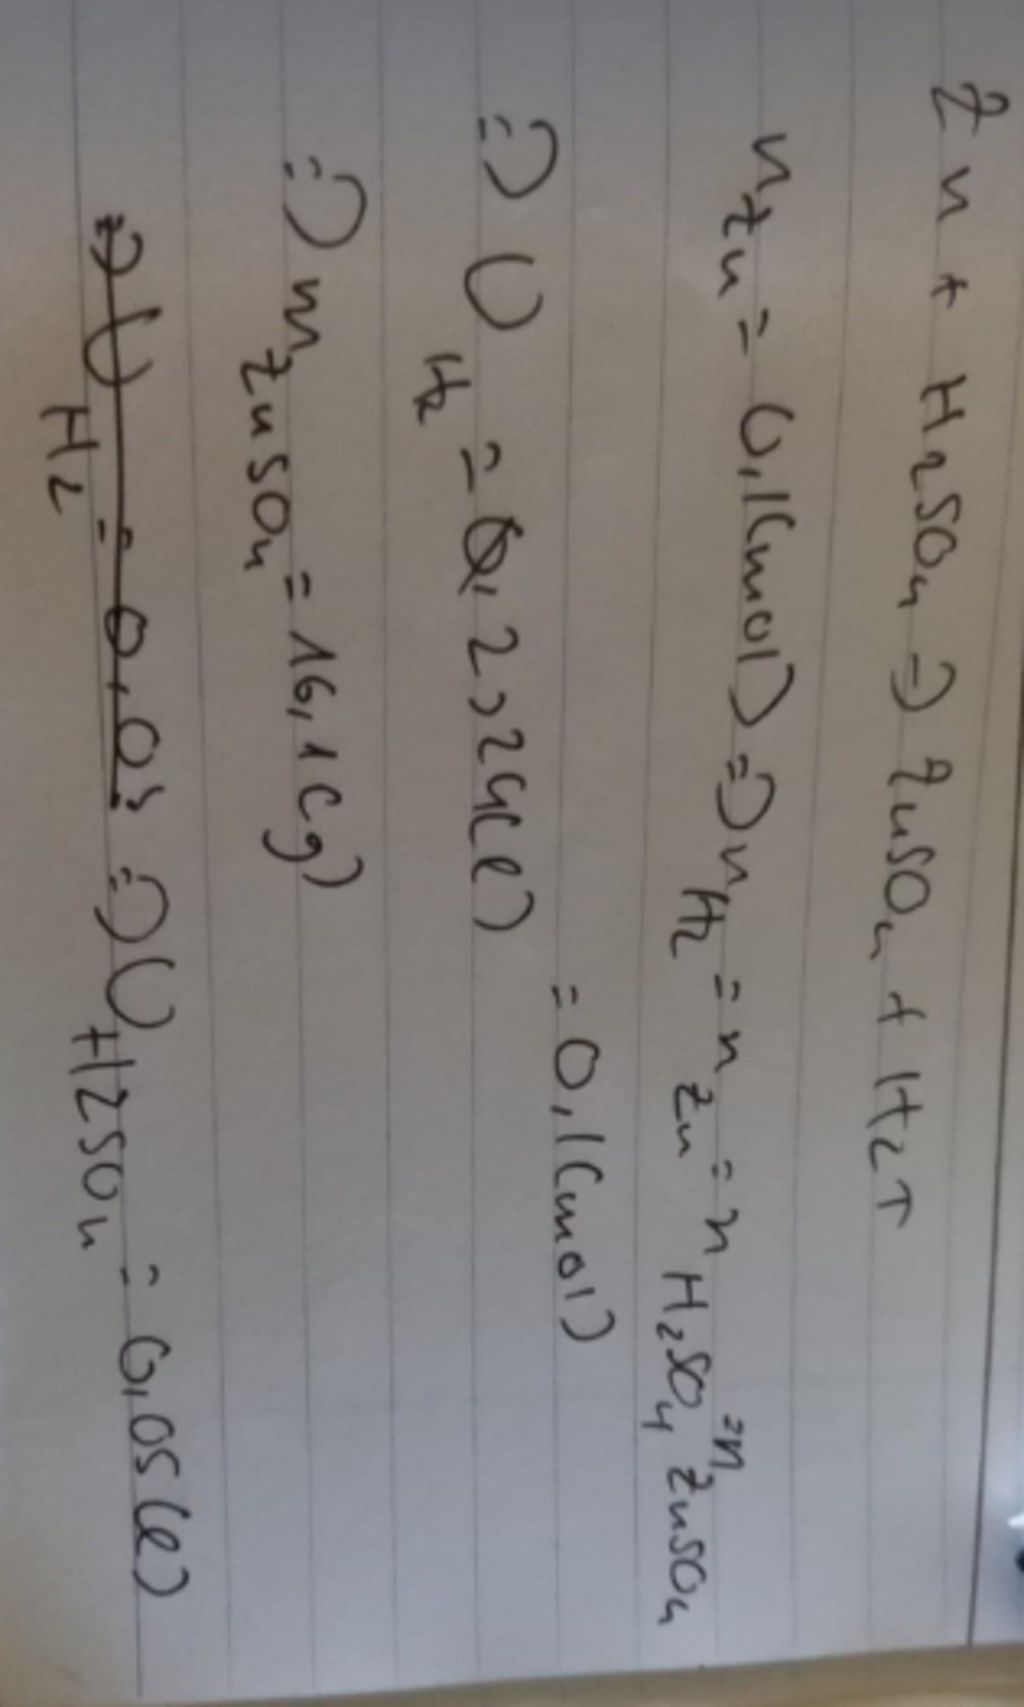 Zn + H₂SO₄ => ZnSO₄ + H₂↑
n Zn = 0,1(mol) => n H₂ = n Zn = n H₂SO₄ = n ZnSO₄
= 0,1(mol)
=> V H₂ = 2,24(l)
=> m ZnSO₄ = 16,1(g)
=> V H₂ = 0,05 => V H₂SO₄ = 0,05(l)